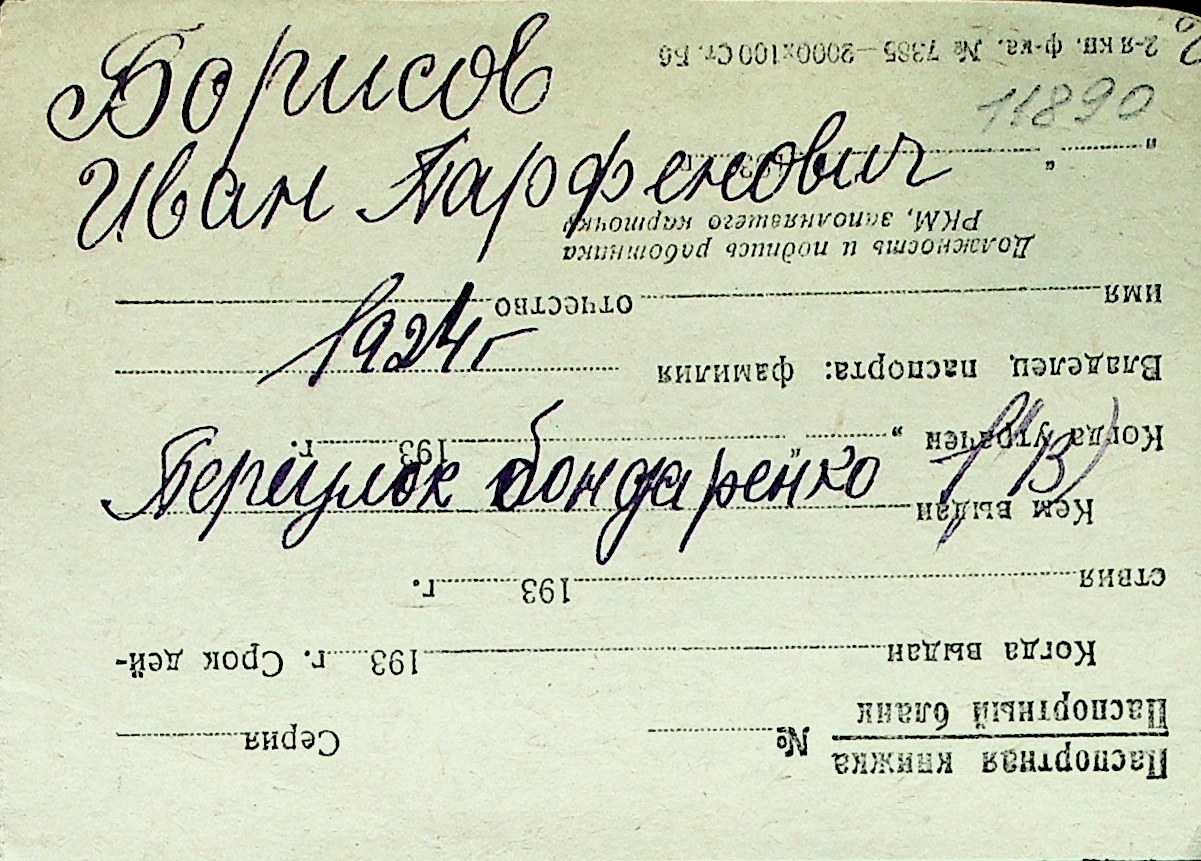 Борисов
Иван Парфенович
1924г
Переулок Бондаренко
11890
Паспортная книжка
Паспортный бланк
№ Серия
Когда выдан 193 г. Срок дей-
ствия 193 г.
Кем выдан
Когда утрачен „ “ 193 г.
Владелец паспорта: фамилия
имя отчество
Должность и подпись работника
РКМ, заполнявшего карточку
„ “ 193 г.
2-я кн. ф-ка. № 7385—2000х100 Ст. Бб